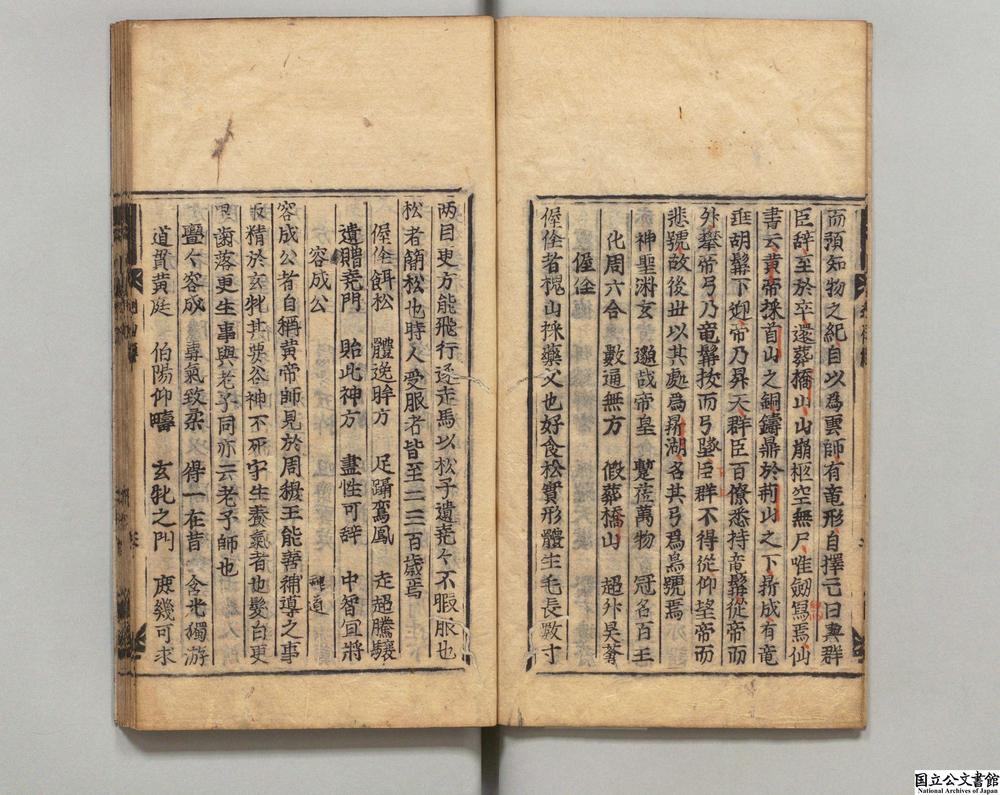 而預知物之紀自以爲雲師有竜形自擇亡日與群
臣辞至於卒還葬橋山山崩柩空無尸唯劔舄焉仙
書云黄帝採首山之銅鑄鼎於荊山之下鼎成有竜
垂胡髯下迎帝乃昇天群臣百僚悉持竜髯從帝而
外攀帝弓乃竜髯拔而弓墜臣群不得從仰望帝而
悲號故後世以其處爲鼎湖名其弓爲烏號焉
神聖淵玄 邈哉帝皇 蹔莅萬物 冠名百王
化周六合 數通無方 假葬橋山 超外昊蒼
偓佺
偓佺者槐山採藥父也好食松實形體生毛長數寸
两目更方能飛行逐走馬以松子遺堯々不暇服也
松者簡松也時人受服者皆至二三百歳焉
偓佺餌松 體逸眸方 足躡鸞鳳 走超騰驤
遺贈堯門 貽此神方 盡性可辞 中智宜將
容成公
容成公者自稱黄帝師見於周穆王能善補導之事
取精於玄牝其要谷神不死守生養氣者也髮白更
黒歯落更生事與老子同亦云老子師也
亹々容成 專氣致柔 得一在昔 含光獨游
道貫黄庭 伯陽仰疇 玄牝之門 庶幾可求
国立公文書館
National Archives of Japan